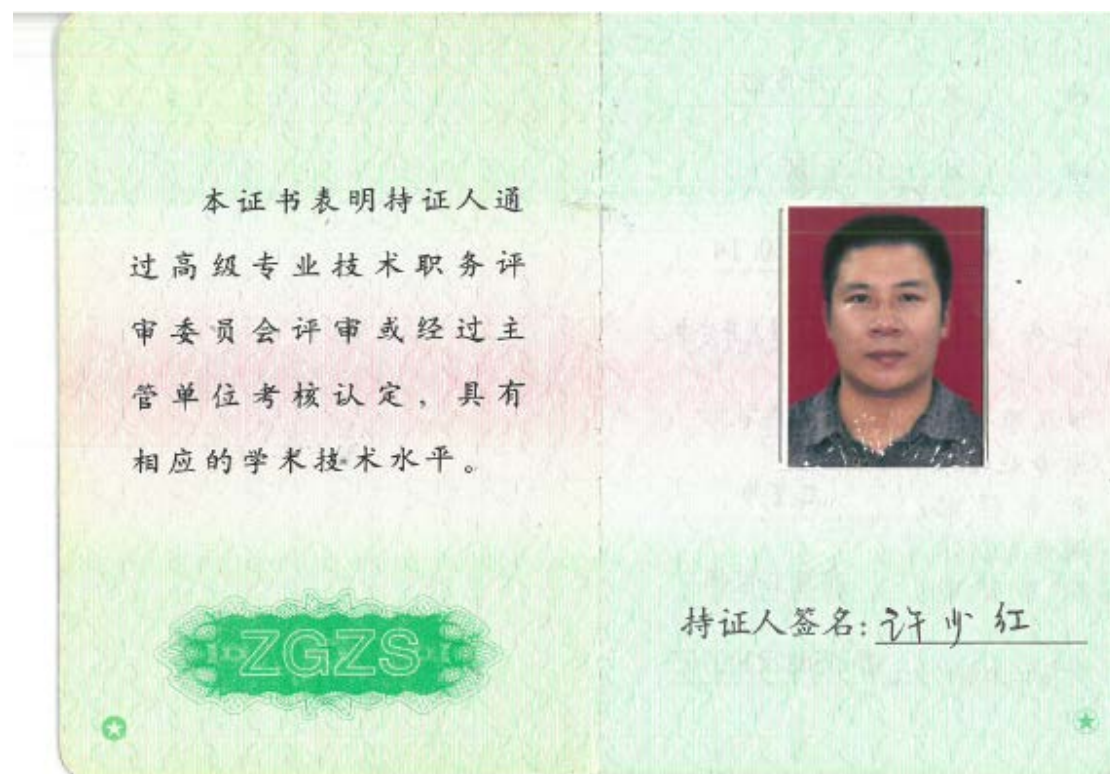 本证书表明持证人通
过高级专业技术职务评
审委员会评审或经过主
管单位考核认定，具有
相应的学术技术水平。
ZGZS
持证人签名：许少红